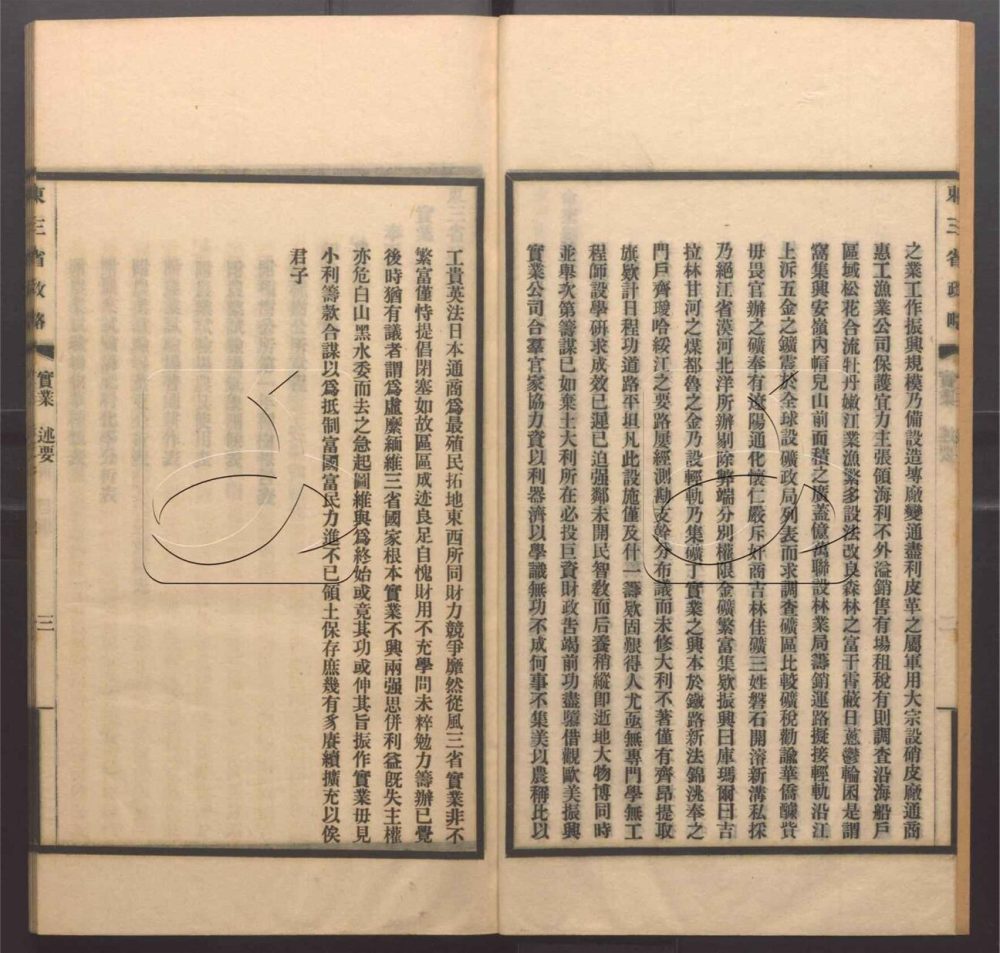 東三省政略
實業 述要
之業工作振興規模乃備設造專廠變通盡利皮革之屬軍用大宗設硝皮廠通商
惠工漁業公司保護宜力主張領海利不外溢銷售有場租稅有則調查沿海船戶
區域松花合流牡丹嫩江業漁繁多設法改良森林之富干霄蔽日蔥鬱輪囷是謂
窩集興安嶺內帽兒山前面積之廣蓋億萬聯設林業局籌銷運路擬接輕軌沿江
上泝五金之鑛震於全球設鑛政局列表而求調查鑛區比較鑛稅勸諭華僑釀貲
毋畏官辦之鑛奉有遼陽通化懷仁嚴斥奸商吉林佳鑛三姓磐石開溶新溝私採
乃絕江省漠河北洋所辦剔除弊端分別權限金鑛繁富集欵振興曰庫瑪爾曰吉
拉林甘河之煤都魯之金乃設輕軌乃集鑛丁實業之興本於鐵路新法錦洮奉之
門戶齊璦哈綏江之要路屢經測勘支幹分布議而未修大利不著僅有齊昂提取
旗欵計日程功道路平坦凡此設施僅及什一籌欵固艱得人尤亟無專門學無工
程師設學研求成效已遲已迫强鄰未開民智教而后養稍縱即逝地大物博同時
並舉次第籌謀已如棄土大利所在必投巨資財政告竭前功盡隳借觀歐美振興
實業公司合羣官家協力資以利器濟以學識無功不成何事不集美以農稱比以
工貴英法日本通商爲最殖民拓地東西所同財力競爭靡然從風三省實業非不
繁富僅恃提倡閉塞如故區區成迹良足自愧財用不充學問未粹勉力籌辦已覺
後時猶有議者謂爲虛糜緬維三省國家根本實業不興兩强思併利益旣失主權
亦危白山黑水委而去之急起圖維與爲終始或竟其功或伸其旨振作實業毋見
小利籌款合謀以爲抵制富國富民力進不已領土保存庶幾有豸賡續擴充以俟
君子
東三省政略
實業 述要
三